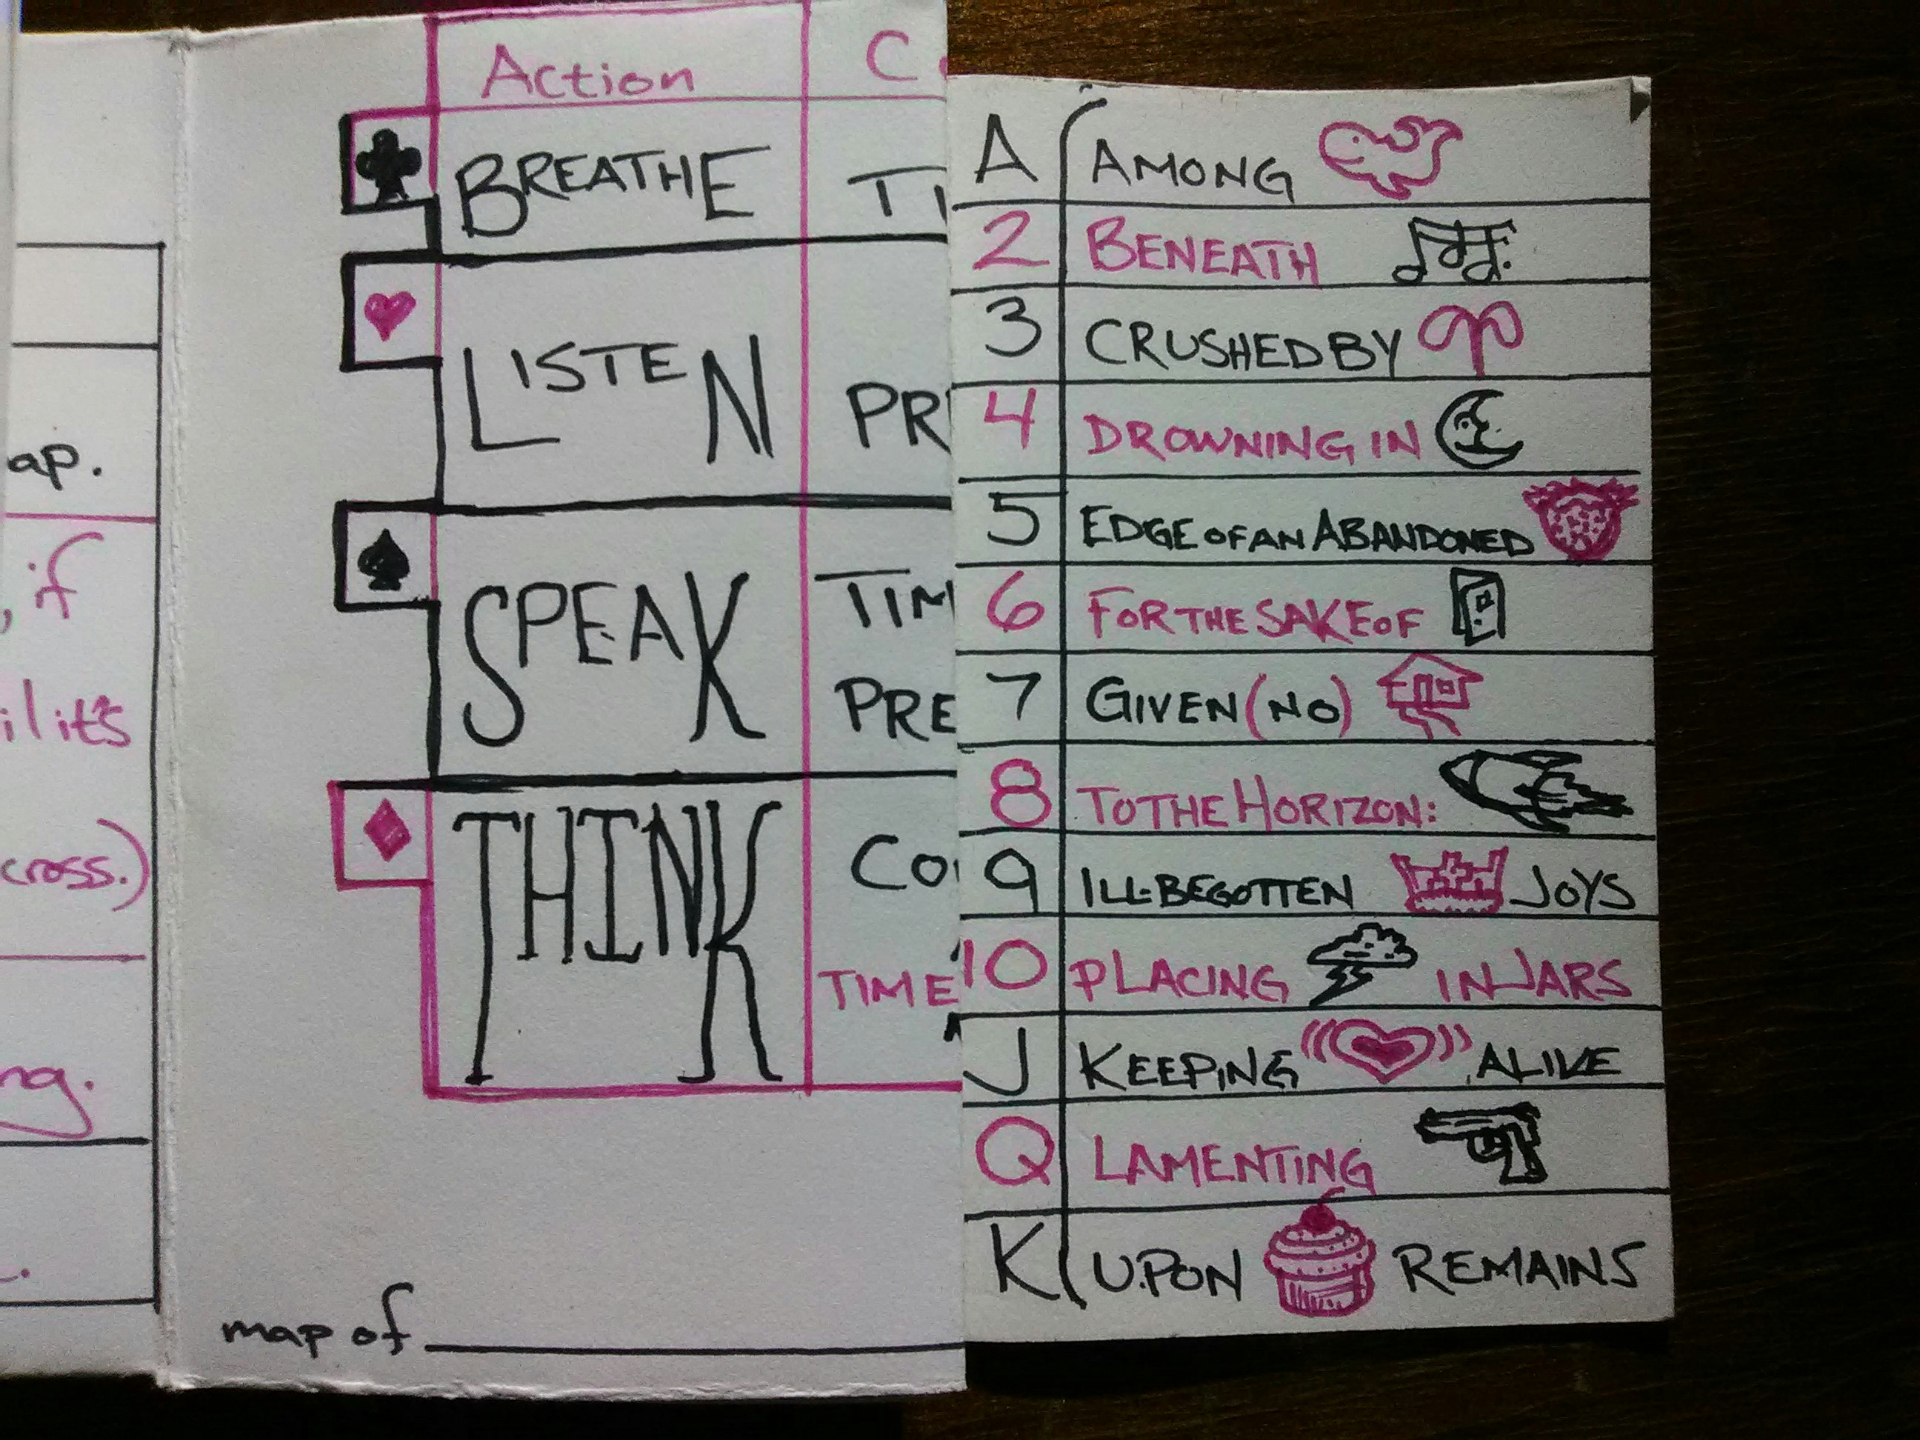 ap.
, if
il it's
cross.)
ng.
Action
C
BREATHE
TI
LISTEN
PR
SPEAK
TIM
PRE
THINK
Co
TIME
map of
A AMONG
2 BENEATH
3 CRUSHED BY
4 DROWNING IN
5 EDGE OF AN ABANDONED
6 FOR THE SAKE OF
7 GIVEN (NO)
8 TO THE HORIZON:
9 ILL-BEGOTTEN JOYS
10 PLACING IN JARS
J KEEPING ALIVE
Q LAMENTING
K UPON REMAINS